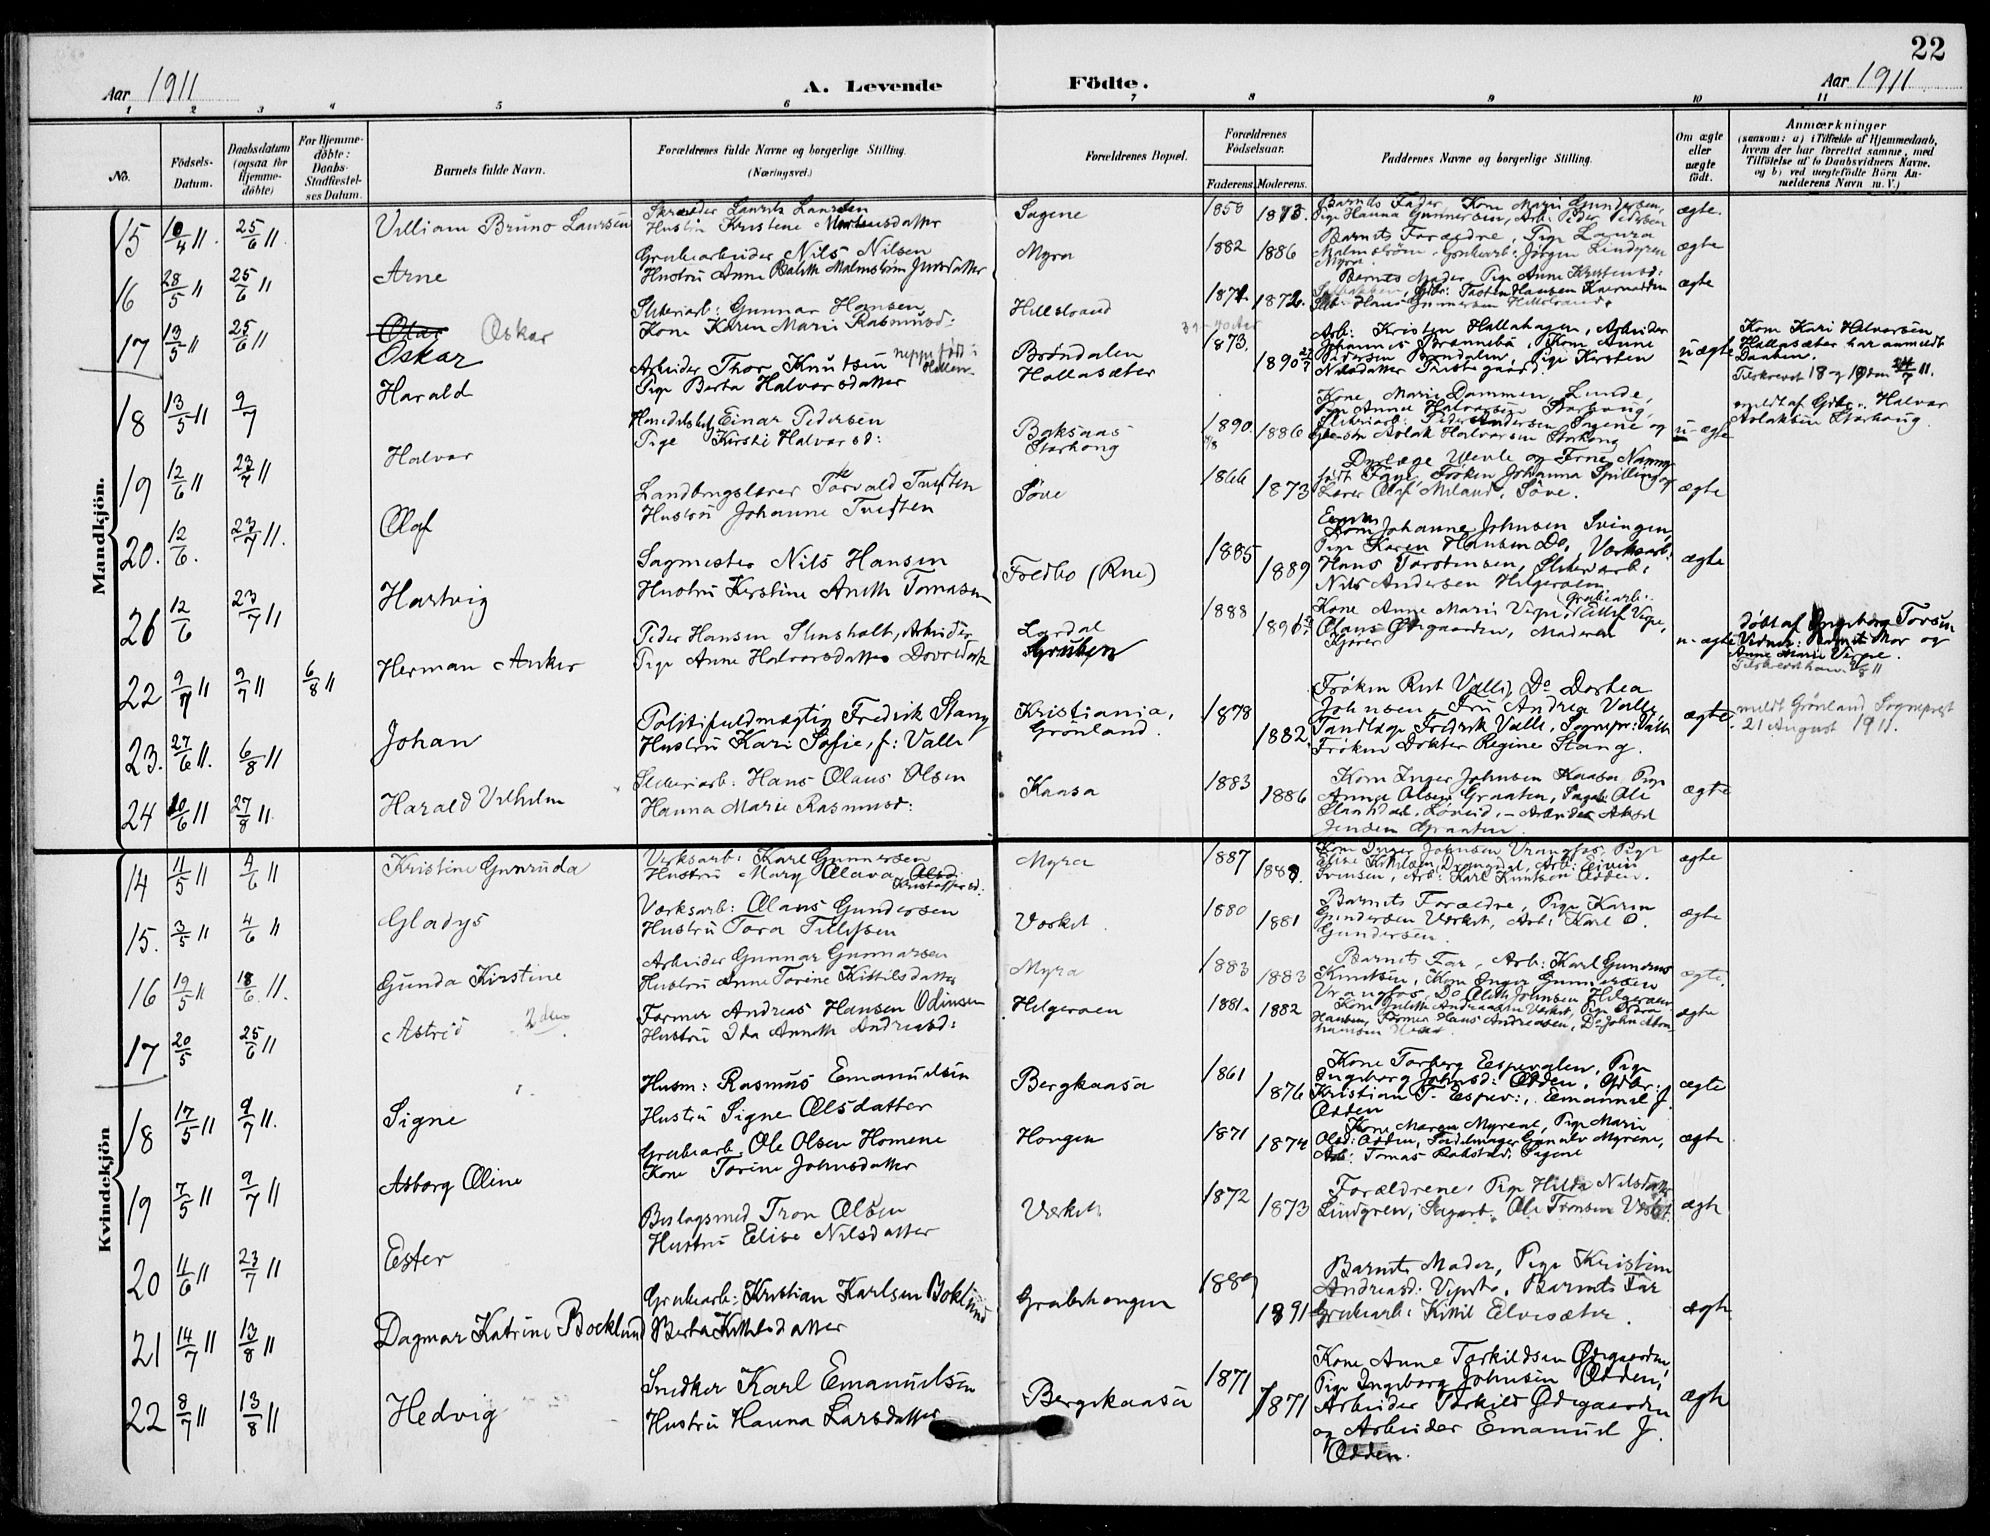 22
Aar 1911
A. Levende Födte.
Aar 1911
1 2 3 4 5 6 7 8 9 10 11
No.
Födsels-Datum.
Daabsdatum (ogsaa for Hjemmedöbte)
For Hjemmedöbte: Daabs-Stadfæstelses Datum.
Barnets fulde Navn.
Forældrenes fulde Navne og borgerlige Stilling.
(Næringsvei.)
Forældrenes Bopæl.
Forældrenes Födselsaar.
Faderens. Moderens.
Faddernes Navne og borgerlige Stilling.
Om ægte eller uægte födt.
Anmærkninger
(saasom: a) i Tilfælde af Hjemmedaab, hvem der har forrettet samme, med Tilföielse af to Daabsvidners Navne. og b) ved uægtefödte Börn Anmelderens Navn m. V.)
Mandkjön.
15 10/4 11. 25/6 11. Villiam Bruno Laursen
Skræder Laurits Laursen
Hustru Kristene Mortensdatter
Sagene 1850 1873.
Barnets Fader, Kone Marie Gundersen,
Pige Hanna Gunnersen, Arb: Peder Pedersen
ægte.
16 28/5 11 25/6 11 Arne
Grubearbeider Nils Nilsen
Hustru Anne Malmstrøm
Myra 1882 1886
Barnets Forældre, Pige Laura
Malmstrøm, Grubearb: Jørgen Lindgren
Myra
ægte
17 13/5 11 25/6 11 Olav Oskar
Oskar
Sliberiarb: Gunnar Hansen
Kone Karen Marie Rasmusd:
Hillestrand 1871. 1872.
Barnets Moder, Pige Anne Kristensd:
Hansen
Hans Gunnersen Hillestrand.
ægte
18 13/5 11 9/7 Harald
Arbeider Thor Knutsen neppe født i
Pige Berta Halvorsdatter
Brøndalen
Hallasæter
1873. 1890
Arb: Kristen Hallahagen, Arbeider
Johannes , Kone Anne
Pedersen Brøndalen, Pige Kirsten
Nilsdatter
uægte
Kone Kari Halvorsen
Hallasæter har anmeldt
Daaben.
Tilskrevet 18 og 19 den 11.
19 12/6 11 23/7 11 Halvor
Einar Pedersen
Pige Kirsti Halvorsd:
Boksaas
Storhoug
1890 1886
Kone Marie Dammen, Lunde,
Pige Anne Halvorsen Storhoug,
Sliberiarb: Peder Andersen Sagene og
Aslak Halvorsen Storhoug
u-ægte
meldt af Gbr. Halvor
Aslaksen Storhoug.
20. 12/6. 23/7 11. Olaf
Landbrugslærer Torvald Tveften
Hustru Johanne Tveften
Søve 1866 1873
Dyrlæge og Frue Nanny
født Faye, Frøken Johanna Spilling og
Lærer Olaf Meland, Søve.
ægte
26 12/6 23/7 11 Hartvig
Sagmester Nils Hansen
Hustru Kirstine Aneth Tomasen
Fredbo (Rue) 1885 1889
Kone Johanne Johnsen Svingen,
Pige Karen Hansen Do, Verksarb:
Hans Torstensen, Sliberiarb:
Nils Andersen Helgeroen
ægte
22 9/7 11 9/7 11 6/8 11 Herman Anker
Peder Hansen , Arbeider
Pige Anne Halvorsdatter
Lardal
Gruben
1888
Kone Anne Marie Verpe, Grubearb: Verpe,
Olaus Ødegaarden, Moderen
u-ægte
døbt af Ingeborg Torsen
Anne Marie Verpe.
23. 27/6 11. 6/8 11 Johan
Politifuldmægtig Fredrik Stang
Hustru Kari Sofie, f: Valle
Kristiania,
Grønland.
1878 1882.
Frøken Rut Valle, Do Dortea
Johnsen, Fru Andrea Valle
Tandlæge Fredrik Valle, Sognepr: Valle
Frøken Dokter Regine Stang.
ægte.
meldt Grønland Sogneprest
21 August 1911.
24 20/6 11 27/8 11. Harald Vilhelm
Sliberiarb: Hans Olaus Olsen
Hanna Marie Rasmusd:
Kaasa 1883 1886
Kone Inger Johnsen Kaasa, Pige
Anna Olsen Graaten, Ole
Løveid, - Arbeider Aksel
Jensen Graaten.
ægte
Kvindekjön
14 11/5 11 4/6 11 Kristine Gunruda
Verksarb: Karl Gunnersen
Hustru Mary Olava Kristoffersd.
Myra 1887 1888.
Kone Inger Johnsen Vrangfos, Pige
Svensen, Arb: Karl Knutsen Odden.
ægte
15. 3/5 11 4/6 11 Gladys
Værksarb: Olaus Gundersen
Hustru Tora Tellefsen
Verket. 1880 1881
Barnets Forældre, Pige Karen
Gundersen Verket, Arb: Karl O.
Gundersen.
ægte
16 19/5 11 18/6 11. Gunda Kirstine
Arbeider Gunnar Gunnarsen
Hustru Anne Torine Kittilsdatter
Myra 1883 1883
Barnets Far, Arb: Karl Gunerius
Knutsen, Kone Inger Gunnersen
Vrangfos, Do Aleth Johnsen Helgeroen
ægte.
17 20/5 25/6 11 Astrid
Former Andreas Hansen Odinsen
Hustru Ida Anneth Andreasd:
Helgeroen 1881. 1882
Kone Andreassen Verket, Pige
Hansen, Former Hans Andreasen, Do John
ægte
18 17/5 11 9/7 11. Signe
Husm: Rasmus Emanuelsen
Hustru Signe Olsdatter
Bergkaasa 1861 1876
Kone Torberg Espevalen, Pige
Ingeborg Johnsd: Odden, Gdbr:
Kristian T. Espev:, Emanuel J.
Odden
ægte
19 7/5 11 9/7 11 Asborg Oline
Grubearb. Ole Olsen Homene
Kone Torine Johnsdatter
Hougen 1871 1874
Kone Maren Myrene, Pige Marie
Olsd: Odden, Sadelmager Gunulv Myrene,
Arb: Tomas Sagene
ægte
20 11/6 11 23/7 11 Ester
Beslagsmed Tron Olsen
Hustru Elise Nilsdatter
Verket 1872 1873
Forældrene, Pige Hilda Nilsdatter
Lindgren, Sagarb. Ole Tronsen Verket.
ægte
21 14/7 11 13/8 11 Dagmar Katrine Bocklund
Grubearb: Kristian Karlsen Boklund
Berta Kittilsdatter
Grubehougen 1889 1891
Barnets Moder, Pige Kristine
Andreasd: Vipeto, Barnets Far
Grubearb: Kittil Elvesæter.
ægte
22 8/7 11 13/8 11 Hedvig
Snedker Karl Emanuelsen
Hustru Hanna Larsdatter
Bergskaasa 1871 1871
Kone Anne Torkildsen Ødegaarden,
Pige Ingeborg Johnsen Odden,
Arbeider Torkild Ødegaarden
og Arbeider Emanuel J.
Odden.
ægte